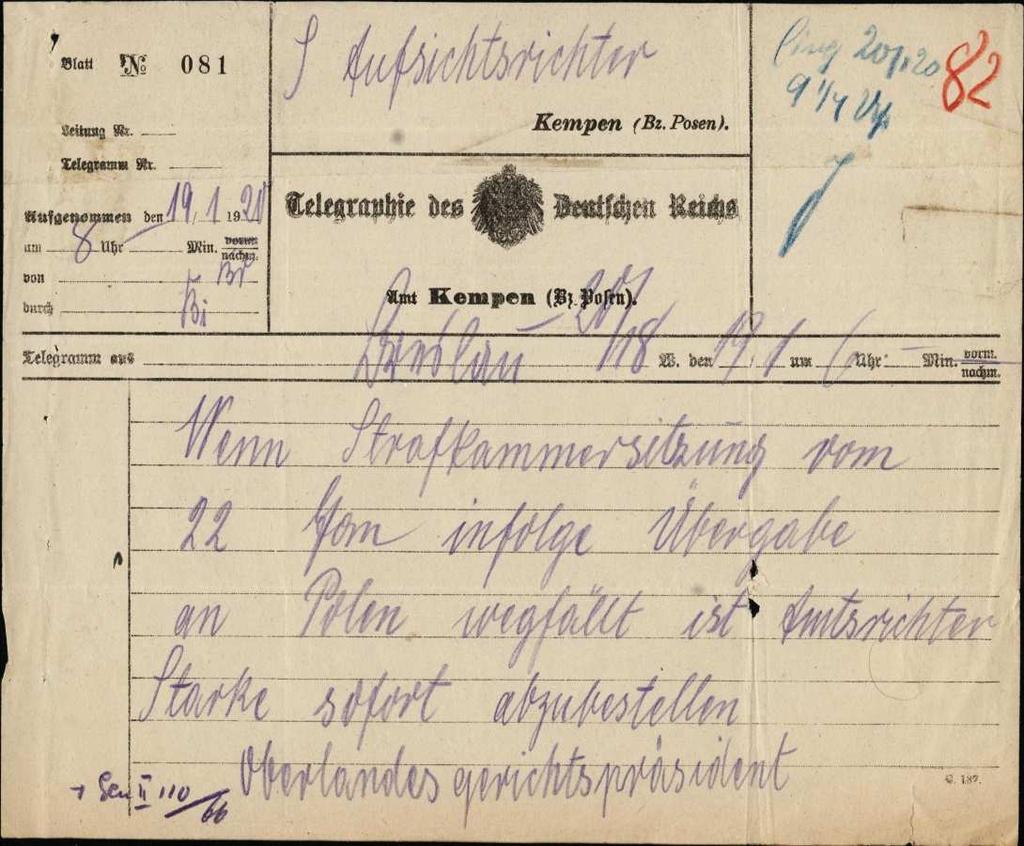 Blatt № 081
Leitung Nr.
Telegramm Nr.
Aufgenommen den 19/1 1920
um 8 Uhr Min. vorm. nachm.
von Br
durch Bi
S Aufsichtsrichter
Kempen (Bz. Posen).
Telegraphie des Deutschen Reichs
Amt Kempen (Bz. Posen).
20/1 20
9 1/4 
82
Telegramm aus Breslau 20/18 W. den 19 1 um 6 Uhr Min. vorm. nachm.
Wenn Strafkammersitzung vom
22 Jan infolge Übergabe
an Polen wegfällt ist Amtsrichter
Starke sofort abzubestellen
Oberlandesgerichtspräsident
Gen II 110/66
C. 187.